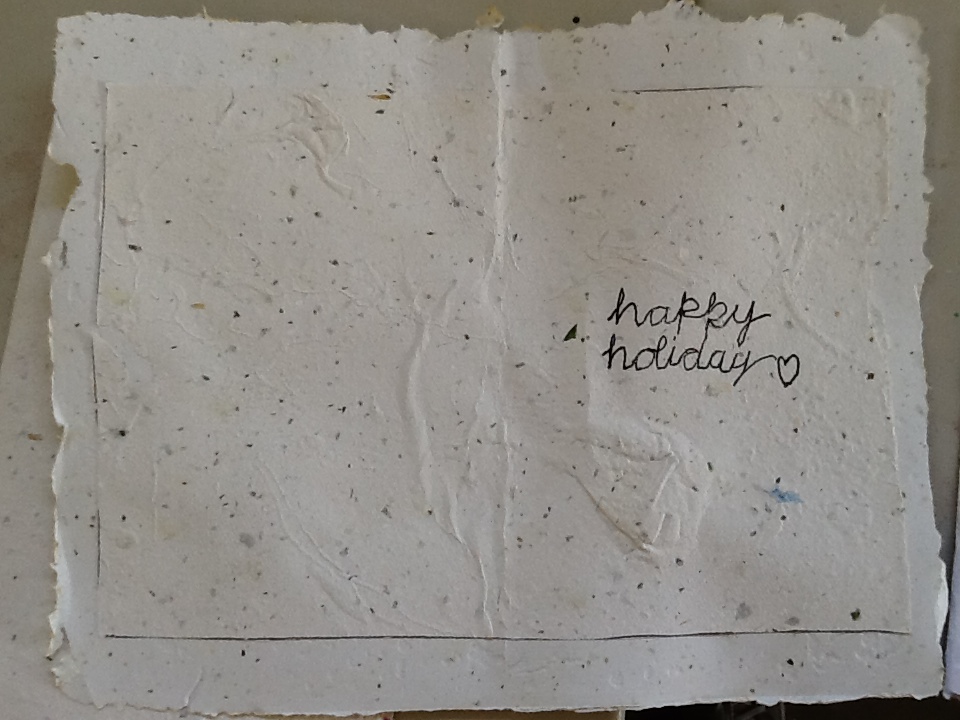 happy
holiday♡